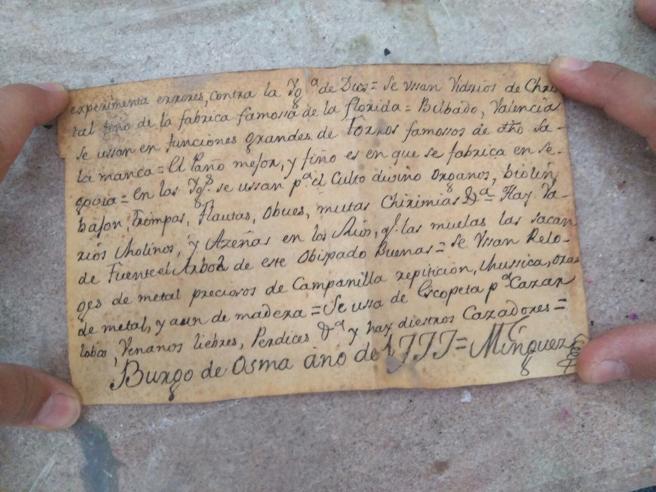 experimenta errores, contra la Ygª de Dios = Se Vssan Vidrios de Chris
tal fino de la fabrica famosa de la florida = Bilbado, Valencia
se ussan en funciones grandes de torros famosos de dho Sa-
lamanca = El Paño mejor, y fino es en que se fabrica en Se-
govia = en las Ygs. se ussan pª el Culto divino Organos, biolin
bajon, trompas, Flautas, Obues, Chirimias &ª = Hay Va-
rios Molinos, y Azeñas en los Rios, q.e las muelas las sacan
de Fuente el Arbol de este Obispado Buenas = Se Vssan Relo-
ges de metal preciosos de Campanilla repiticion, Mussica,
de metal, y aun de madera = Se ussa de Escopeta pª Cazar
lobos, Venanos liebres, Perdices &ª y hay diestros Cazadores =
Burgo de Osma año de 1777 = Minguez